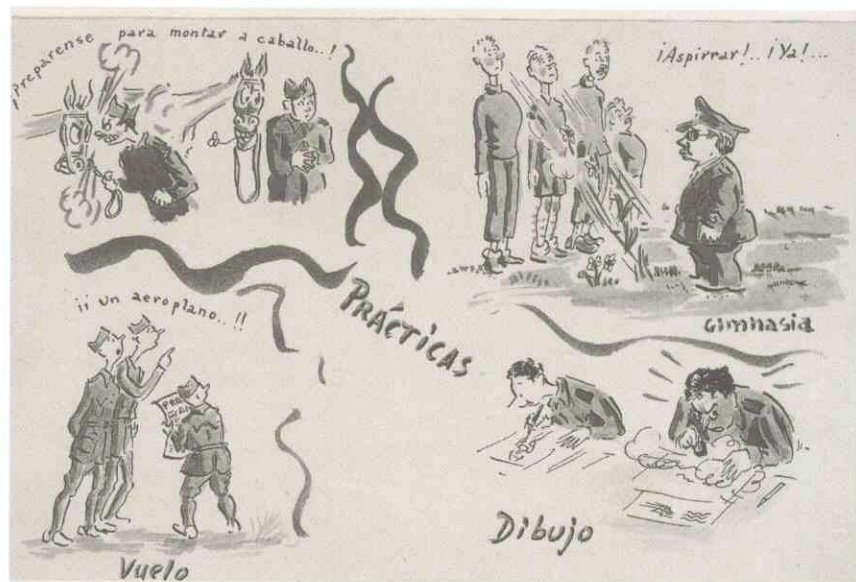 ¡Preparense para montar a caballo..!
¡Aspirrar!.. ¡Ya!...
Gimnasia
PRÁCTICAS
¡¡ Un aeroplano..!!
Vuelo
Dibujo